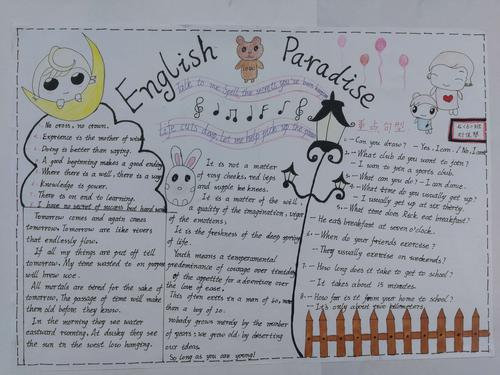 English Paradise
Talk to me Spell the secrets you've been
Life cuts deep Let me help pick up the
No cross, no crown.
Experience is the mother of wis
Doing is better than saying.
A good beginning makes a good ending
Where there is a will, there is a way
Knowledge is power.
There is on end to learning.
I have no secret of success but hard work
Tomorrow comes and again comes
tomorrow. Tomorrow are like rivers
that endlessly flow.
If all my things are put off till
tomorrow. My time wasted to on
will brew woe.
All mortals are tired for the sake of
tomorrow, The passage of time will make
them old before they know.
In the morning they see water
eastward running, At dusky they see
the sun in the west low hanging.
It is not a matter
of rosy cheeks, red lips
and supple knees.
It is a matter of the will,
a quality of the imagination, vigor
of the emotions;
It is the freshness of the deep spring
of life.
Youth means a temperamental
predominance of courage over timidity
of the appetite for adventure over
the love of ease,
This often exists in a man of 60, more
than a boy of 20.
nobody grows merely by the number
of years; we grow old by deserting
our ideas.
So long as you are young!
重点句型
1、-Can you draw? - Yes, I can. / No, I can't
2、-What club do you want to join?
- I want to join a sports club.
3、-What can you do? - I can dance.
4、-What time do you usually get up?
- I usually get up at six thirty
5、-What time does Rick eat breakfast?
- He eats breakfast at seven o'clock.
6、-When do your friends exercise?
- They usually exercise on weekends!
7、-How long does it take to get to school?
- It takes about 15 minutes.
8、-How far is it from your home to school?
- It's only about two kilometers.